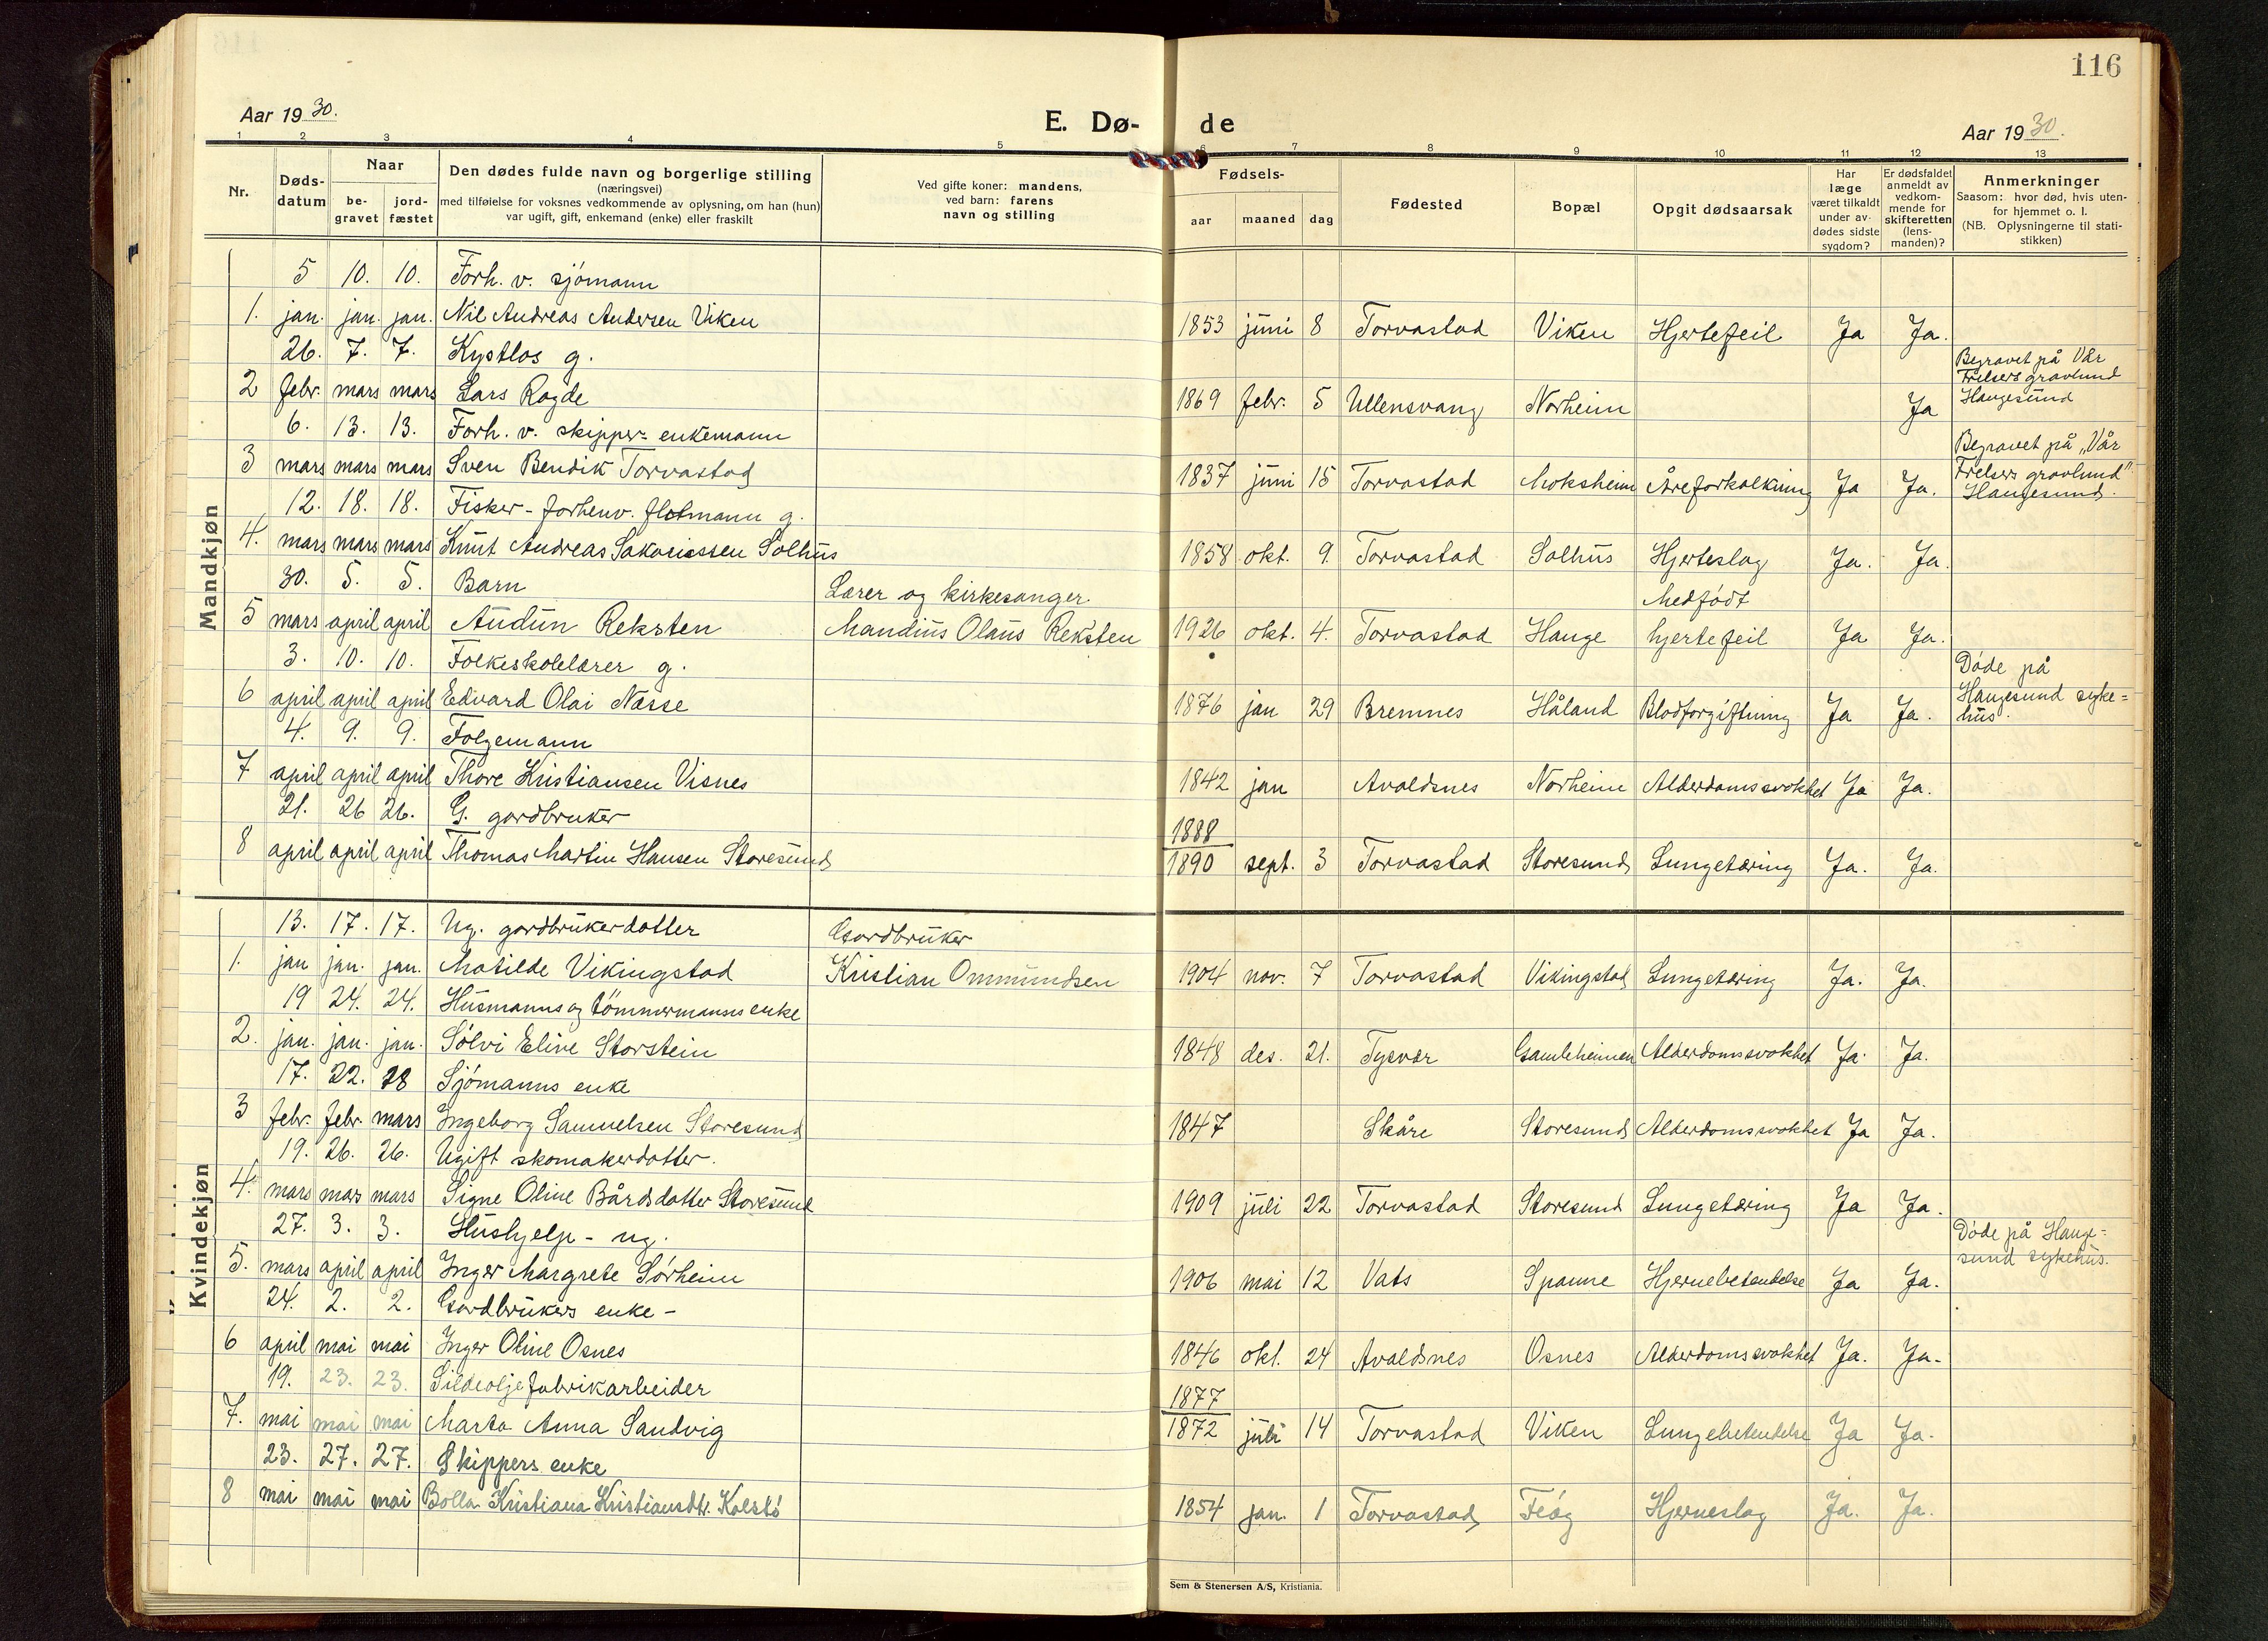 116
Aar 1930.
E. Dø-de
Aar 1930.
1 2 3 4 5 6 7 8 9 10 11 12 13
Nr.
Døds-
datum
Naar
be-
gravet
jord-
fæstet
Den dødes fulde navn og borgerlige stilling
(næringsvei)
med tilføielse for voksnes vedkommende av oplysning, om han (hun)
var ugift, gift, enkemand (enke) eller fraskilt
Ved gifte koner: mandens,
ved barn: farens
navn og stilling
Fødsels-
aar maaned dag
Fødested
Bopæl
Opgit dødsaarsak
Har
læge
været tilkaldt
under av-
dødes sidste
sygdom?
Er dødsfaldet
anmeldt av
vedkom-
mende for
skifteretten
(lens-
manden)?
Anmerkninger
Saasom: hvor død, hvis uten-
for hjemmet o. l.
(NB. Oplysningerne til stati-
stikken)
Mandkjøn
5 10. 10. Forh. v. sjömann
1. jan. jan. jan. Nil Andreas Andersen Viken 1853 juni 8 Torvastad Viken Hjertefeil Ja Ja.
26. 7. 7. Kystlos g.
Begravet på Vår
Frelsers gravlund
Haugesund
2 febr. mars mars Lars Ragde 1869 febr. 5 Ullensvang Norheim Ja
6. 13. 13. Forh. v. skipper- enkemann
Begravet på "Vår
Frelsers gravlund"
Haugesund.
3 mars mars mars Sven Bendik Torvastad 1837 juni 15 Torvastad Moksheim Åreforkalkning Ja Ja.
12. 18. 18. Fisker - forhenv. flotmann g.
4. mars mars mars Knut Andreas Sakariassen Solhus 1858 okt. 9. Torvastad Solhus Hjerteslag Ja. Ja.
30. 5. 5. Barn Lærer og kirkesanger Medfödt
5 mars april april Audun Reksten Mandius Olaus Reksten 1926 okt. 4. Torvastad Hauge hjertefeil Ja Ja.
3. 10. 10. Folkeskolelærer g.
Döde på
Haugesund syke=
hus.
6 april april april Edvard Olai Næsse 1876 jan 29 Bremnes Håland Blodforgiftning Ja Ja.
4. 9. 9. Folgemann
7 april april april Thore Kristiansen Visnes 1842 jan Avaldsnes Norheim Alderdomssvakhet Ja Ja.
21. 26 26. G. gardbruker 1888
8 april april april Thomas Martin Hansen Storesund 1890 sept. 3 Torvastad Storesund Lungetæring Ja. Ja.
Kvindekjøn
13. 17. 17. Ug. gardbrukerdatter Gardbruker
1. jan jan. jan. Matilde Vikingstad Kristian Ommundsen 1904 nov. 7 Torvastad Vikingstad Lungetæring Ja. Ja.
19 24. 24. Husmanns og tömmermanns enke
2. jan. jan. jan. Sölvi Eline Storstein 1848 des. 21. Tysvær Gamleheimen Alderdomssvakhet Ja. Ja.
17. 22. 28 Sjömanns enke
3 febr. febr. mars Ingeborg Samuelsen Storesund 1847 Skåre Storesund Alderdomssvakhet Ja Ja.
19. 26. 26. Ugift skomakerdatter.
4. mars mars mars Signe Oline Bårdsdatter Storesund 1909 juli 22 Torvastad Storesund Lungetæring Ja Ja.
27. 3. 3. Hushjelp - ug.
Döde på Hauge-
sund sykehus.
5. mars april april Inger Margrete Sörheim 1906 mai 12 Vats Spanne Hjernebetendelse Ja Ja.
24. 2. 2. Gardbrukers enke -
6 april mai mai Inger Oline Osnes 1846 okt. 24 Avaldsnes Osnes Alderdomssvakhet Ja. Ja.
19. 23. 23. Sildeoljefabrikarbeider 1877
7. mai mai mai Marta Anna Sandvig 1872 juli 14 Torvastad Viken Lungebetendelse Ja Ja.
23. 27. 27. Skippers enke
8 mai mai mai Bolla Kristiana Kristiansdtr. Kolstö 1854 jan. 1 Torvastad Feöy Hjerneslag Ja. Ja.
Sem & Stenersen A/S, Kristiania.